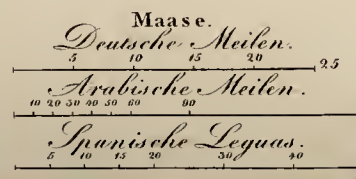 Maase.
Deutsche Meilen.
5 10 15 20 25
Arabische Meilen.
10 20 30 40 50 60 90
Spanische Leguas.
5 10 15 20 30 40